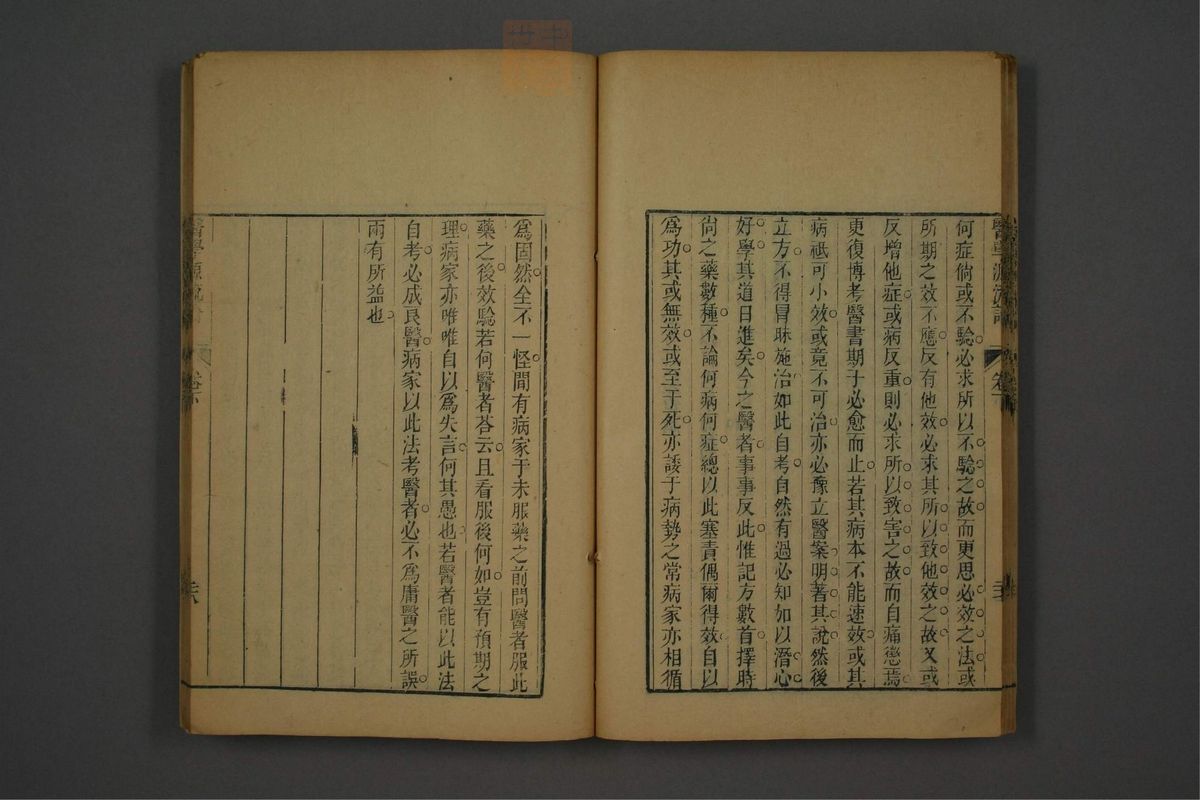 何症倘或不驗必求所以不驗之故而更思必效之法或
所期之效不應反有他效必求其所以致他效之故又或
反增他症或病反重則必求所以致害之故而自痛懲焉
更復博考醫書期于必愈而止若其病本不能速效或其
病祗可小效或竟不可治亦必豫立醫案明著其說然後
立方不得冒昧施治如此自考自然有過必知加以潛心
好學其道日進矣今之醫者事事反此惟記方數首擇時
尙之藥數種不論何病何症總以此塞責偶爾得效自以
爲功其或無效或至于死亦諉于病勢之常病家亦相循
醫學源流論
卷下
爲固然全不一怪間有病家于未服藥之前問醫者服此
藥之後效驗若何醫者荅云且看服後何如豈有預期之
理病家亦唯唯自以爲失言何其愚也若醫者能以此法
自考必成良醫病家以此法考醫者必不爲庸醫之所誤
兩有所益也
卷下